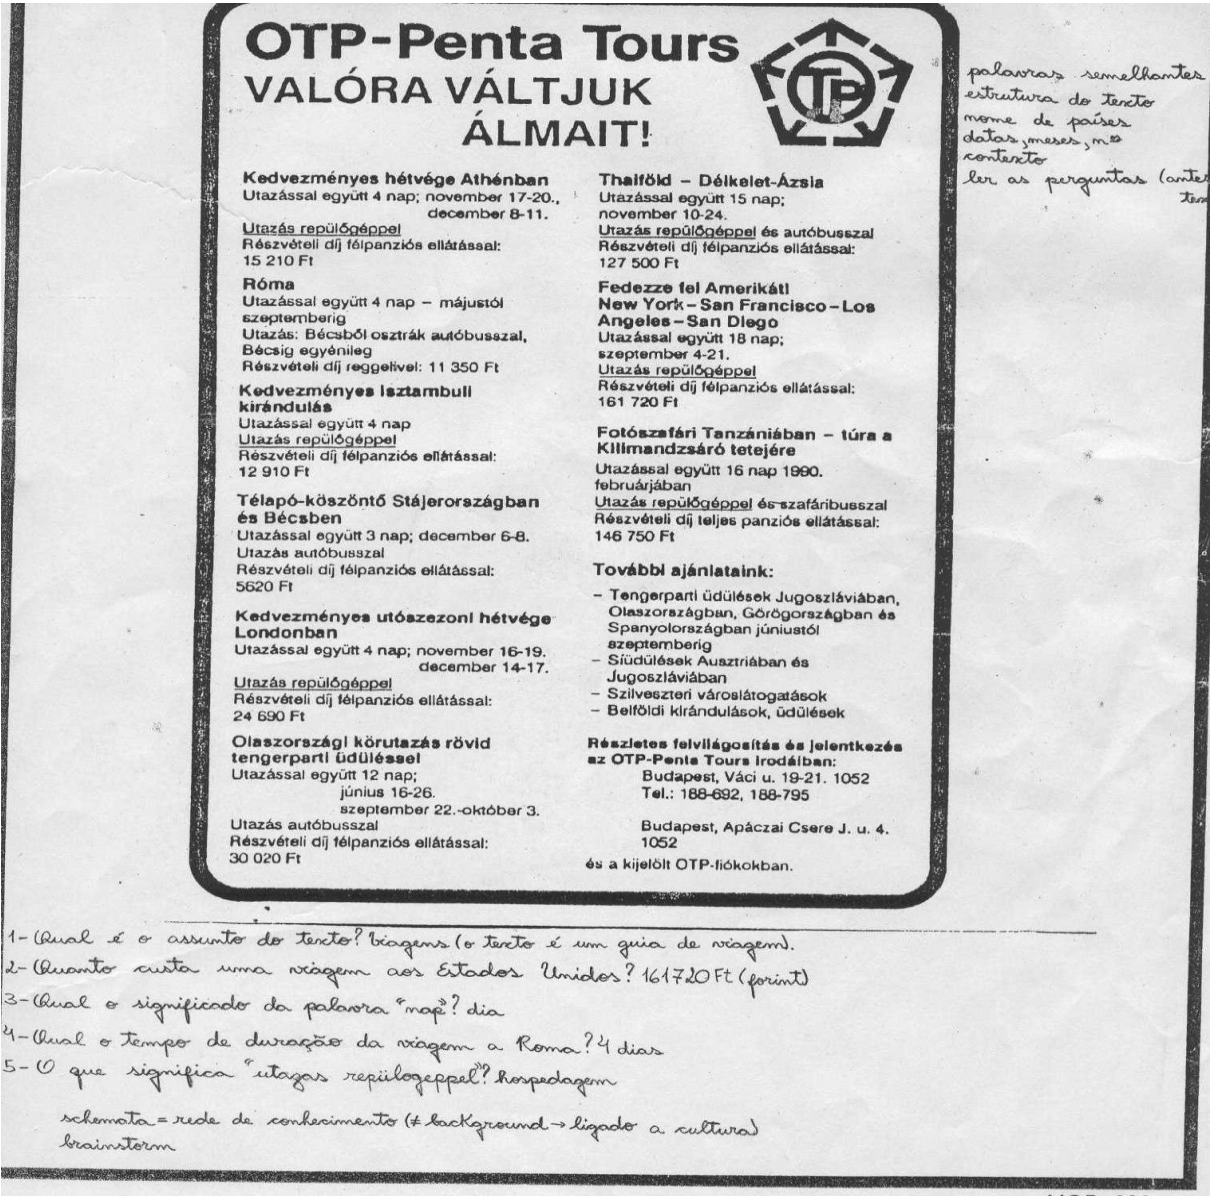 OTP-Penta Tours
VALÓRA VÁLTJUK
ÁLMAIT!
TP
Kedvezményes hétvége Athénban
Utazással együtt 4 nap; november 17-20.,
december 8-11.
Utazás repülőgéppel
Részvételi díj félpanziós ellátással:
15 210 Ft
Róma
Utazással együtt 4 nap – májustól
szeptemberig
Utazás: Bécsből osztrák autóbusszal,
Bécsig egyénileg
Részvételi díj reggelivel: 11 350 Ft
Kedvezményes Isztambuli
kirándulás
Utazással együtt 4 nap
Utazás repülőgéppel
Részvételi díj félpanziós ellátással:
12 910 Ft
Télapó-köszöntő Stájerországban
és Bécsben
Utazással együtt 3 nap; december 6-8.
Utazás autóbusszal
Részvételi díj félpanziós ellátással:
5620 Ft
Kedvezményes utószezoni hétvége
Londonban
Utazással együtt 4 nap; november 16-19.
december 14-17.
Utazás repülőgéppel
Részvételi díj félpanziós ellátással:
24 690 Ft
Olaszországi körutazás rövid
tengerparti üdüléssel
Utazással együtt 12 nap;
június 16-26.
szeptember 22.-október 3.
Utazás autóbusszal
Részvételi díj félpanziós ellátással:
30 020 Ft
Thaiföld – Délkelet-Ázsia
Utazással együtt 15 nap;
november 10-24.
Utazás repülőgéppel és autóbusszal
Részvételi díj félpanziós ellátással:
127 500 Ft
Fedezze fel Amerikát!
New York – San Francisco – Los
Angeles – San Diego
Utazással együtt 18 nap;
szeptember 4-21.
Utazás repülőgéppel
Részvételi díj félpanziós ellátással:
161 720 Ft
Fotószafári Tanzániában – túra a
Kilimandzsáró tetejére
Utazással együtt 16 nap 1990.
februárjában
Utazás repülőgéppel és szafáribusszal
Részvételi díj teljes panziós ellátással:
146 750 Ft
További ajánlataink:
– Tengerparti üdülések Jugoszláviában,
Olaszországban, Görögországban és
Spanyolországban júniustól
szeptemberig
– Síüdülések Ausztriában és
Jugoszláviában
– Szilveszteri városlátogatások
– Belföldi kirándulások, üdülések
Részletes felvilágosítás és jelentkezés
az OTP-Penta Tours irodáiban:
Budapest, Váci u. 19-21. 1052
Tel.: 188-692, 188-795
Budapest, Apáczai Csere J. u. 4.
1052
és a kijelölt OTP-fiókokban.
palavras semelhantes
estrutura do texto
nome de países
datas, meses, nºs
contexto
ler as perguntas
1- Qual é o assunto do texto? Viagens (o texto é um guia de viagem).
2- Quanto custa uma viagem aos Estados Unidos? 161720 Ft (forint)
3- Qual o significado da palavra "nap"? dia
4- Qual o tempo de duração da viagem a Roma? 4 dias
5- O que significa "utazas repülogeppel"? hospedagem
schemata = rede de conhecimento (≠ background → ligado a cultura)
brainstorm